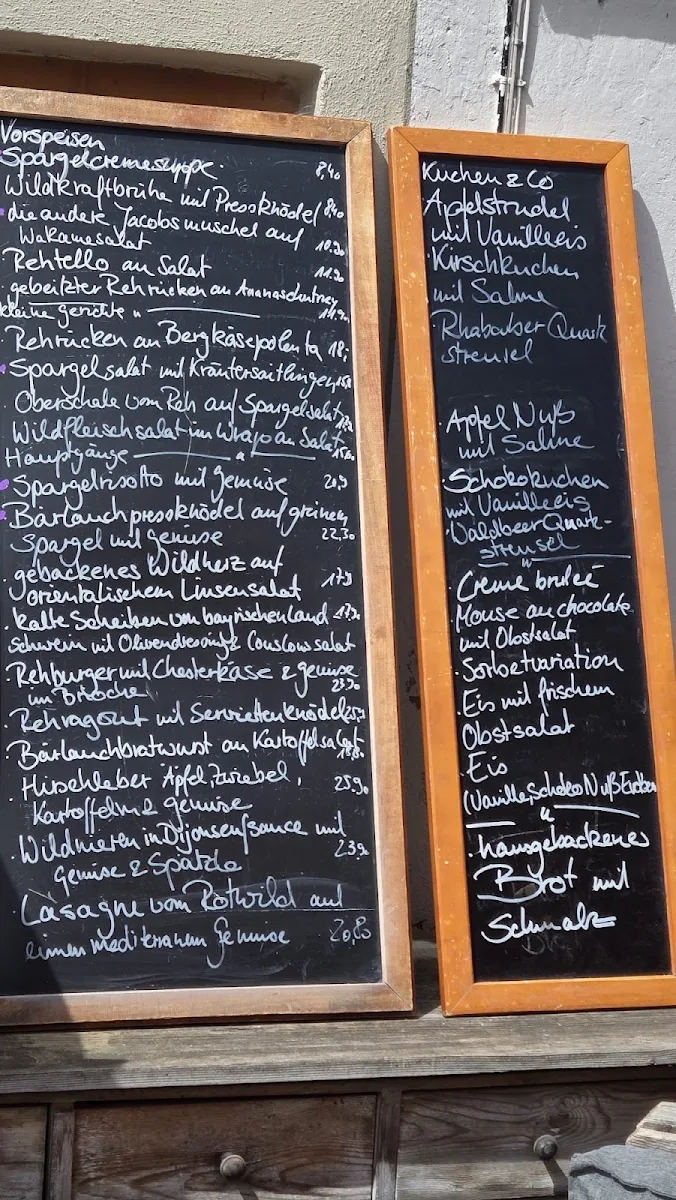 Vorspeisen
Spargelcremesuppe 8,40
Wildkraftbrühe mit Pressknödel 8,40
die andere Jacobsmuschel auf
Wakamesalat 10.90
Rehtello an Salat 11.90
gebeitzter Rehrücken an Ananaschutney
kleine gerichte "
Rehrücken an Bergkäsepolenta 18,-
Spargelsalat mit Kräutersaitlingen
Oberschale vom Reh auf Spargelsalat
Wildfleischsalat im Wrap an Salat
Hauptgänge "
Spargelrisotto mit gemüse 20,9
Bärlauchpressknödel auf grünem
Spargel mit gemüse 22,30
gebackenes Wildherz auf 17,9
orientalischem Linsensalat
kalte Scheiben vom bayrischen land
schwein mit Olivendressing & Couslowsalat
Rehburger mit Chesterkäse & gemüse
im Brioche 23,90
Rehragout mit Serviettenknödel
Bärlauchbratwurst an Kartoffelsalat
Hirschleber Apfel, Zwiebel, 25,90
Kartoffeln & gemüse
Wildnieren in Dijonsenfsauce mit
Gemüse & Spätzle 23,9
Lasagne vom Rotwild auf
einem mediteranem Gemüse 20,80
Kuchen & Co
Apfelstrudel
mit Vanilleeis
Kirschkuchen
mit Sahne
Rhabarber Quark
streusel
Apfel Nuß
mit Sahne
Schokokuchen
mit Vanilleeis
Waldbeer Quark-
streusel
"
Creme brulée
Mouse au chocolate
mit Obstsalat
Sorbetvariation
Eis mit frischem
Obstsalat
Eis
(Vanille, Schoko Nuß Erdbeer
"
hausgebackenes
Brot mit
Schmalz